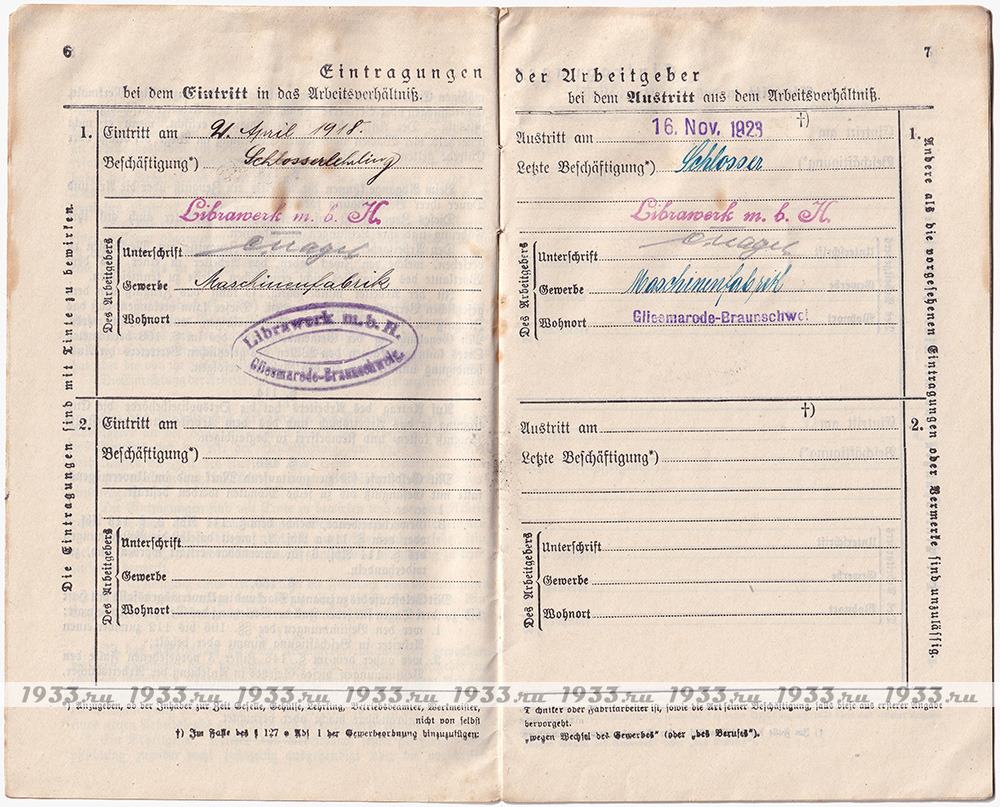 6
Eintragungen
bei dem Eintritt in das Arbeitsverhältniß.
1. Eintritt am 21. April 1918.
Beschäftigung*) Schlosserlehrling
Librawerk m. b. H.
Des Arbeitgebers
Unterschrift
Gewerbe Maschinenfabrik
Wohnort
Librawerk m.b.H.
Gliesmarode-Braunschweig.
2. Eintritt am
Beschäftigung*)
Des Arbeitgebers
Unterschrift
Gewerbe
Wohnort
Die Eintragungen sind mit Tinte zu bewirken.
*) Anzugeben, ob der Inhaber zur Zeit Geselle, Gehilfe, Lehrling, Betriebsbeamter, Werkmeister,
nicht von selbst
†) Im Falle des § 127 e Abs 1 der Gewerbeordnung hinzuzufügen:
7
der Arbeitgeber
bei dem Austritt aus dem Arbeitsverhältniß.
1. Austritt am 16. Nov. 1923 †)
Letzte Beschäftigung*) Schlosser
Librawerk m. b. H.
Des Arbeitgebers
Unterschrift
Gewerbe Maschinenfabrik
Wohnort Gliesmarode-Braunschwei
2. Austritt am †)
Letzte Beschäftigung*)
Des Arbeitgebers
Unterschrift
Gewerbe
Wohnort
Andere als die vorgesehenen Eintragungen oder Vermerke sind unzulässig.
T chniker oder Fabrikarbeiter ist, sowie die Art seiner Beschäftigung, falls diese aus ersterer Angabe
hervorgeht.
„wegen Wechsel des Gewerbes" (oder „des Berufes").
1933.ru 1933.ru 1933.ru 1933.ru 1933.ru 1933.ru 1933.ru 1933.ru 1933.ru